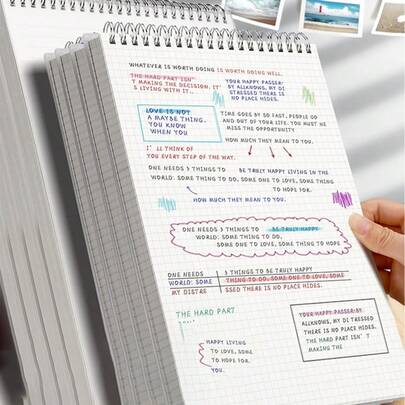 WHATEVER IS WORTH DOING IS WORTH DOING WELL.
THE HARD PART ISN'
T MAKING THE DECISION. IT'
S LIVING WITH IT..
YOUR HAPPY PASSER-
BY ALLKNOWS, MY DI
STRESSED THERE IS
NO PLACE HIDES.
LOVE IS NOT
A MAYBE THING.
YOU KNOW
WHEN YOU
TIME GOES BY SO FAST, PEOPLE GO
AND OUT OF YOUR LIFE. YOU MUST NE
MISS THE OPPORTUNITY
HOW MUCH THEY MEAN TO YOU.
I' LL THINK OF
YOU EVERY STEP OF THE WAY.
ONE NEEDS 3 THINGS TO BE TRULY HAPPY LIVING IN THE
WORLD: SOME THING TO DO, SOME ONE TO LOVE, SOME THING
TO HOPE FOR.
HOW MUCH THEY MEAN TO YOU.
ONE NEEDS 3 THINGS TO BE TRULY HAPPY
WORLD: SOME THING TO DO,
SOME ONE TO LOVE, SOME THING TO HOPE
ONE NEEDS 3 THINGS TO BE TRULY HAPPY
WORLD: SOME THING TO DO, SOME ONE TO LOVE, SOME
MY DISTRE SSED THERE IS NO PLACE HIDES.
THE HARD PART
YOUR HAPPY PASSER-BY
ALLKNOWS, MY DI TRESSED
THERE IS NO PLACE HIDES.
THE HARD PART ISN' T
MAKING THE
HAPPY LIVING
TO LOVE, SOME
TO HOPE FOR.
YOU.